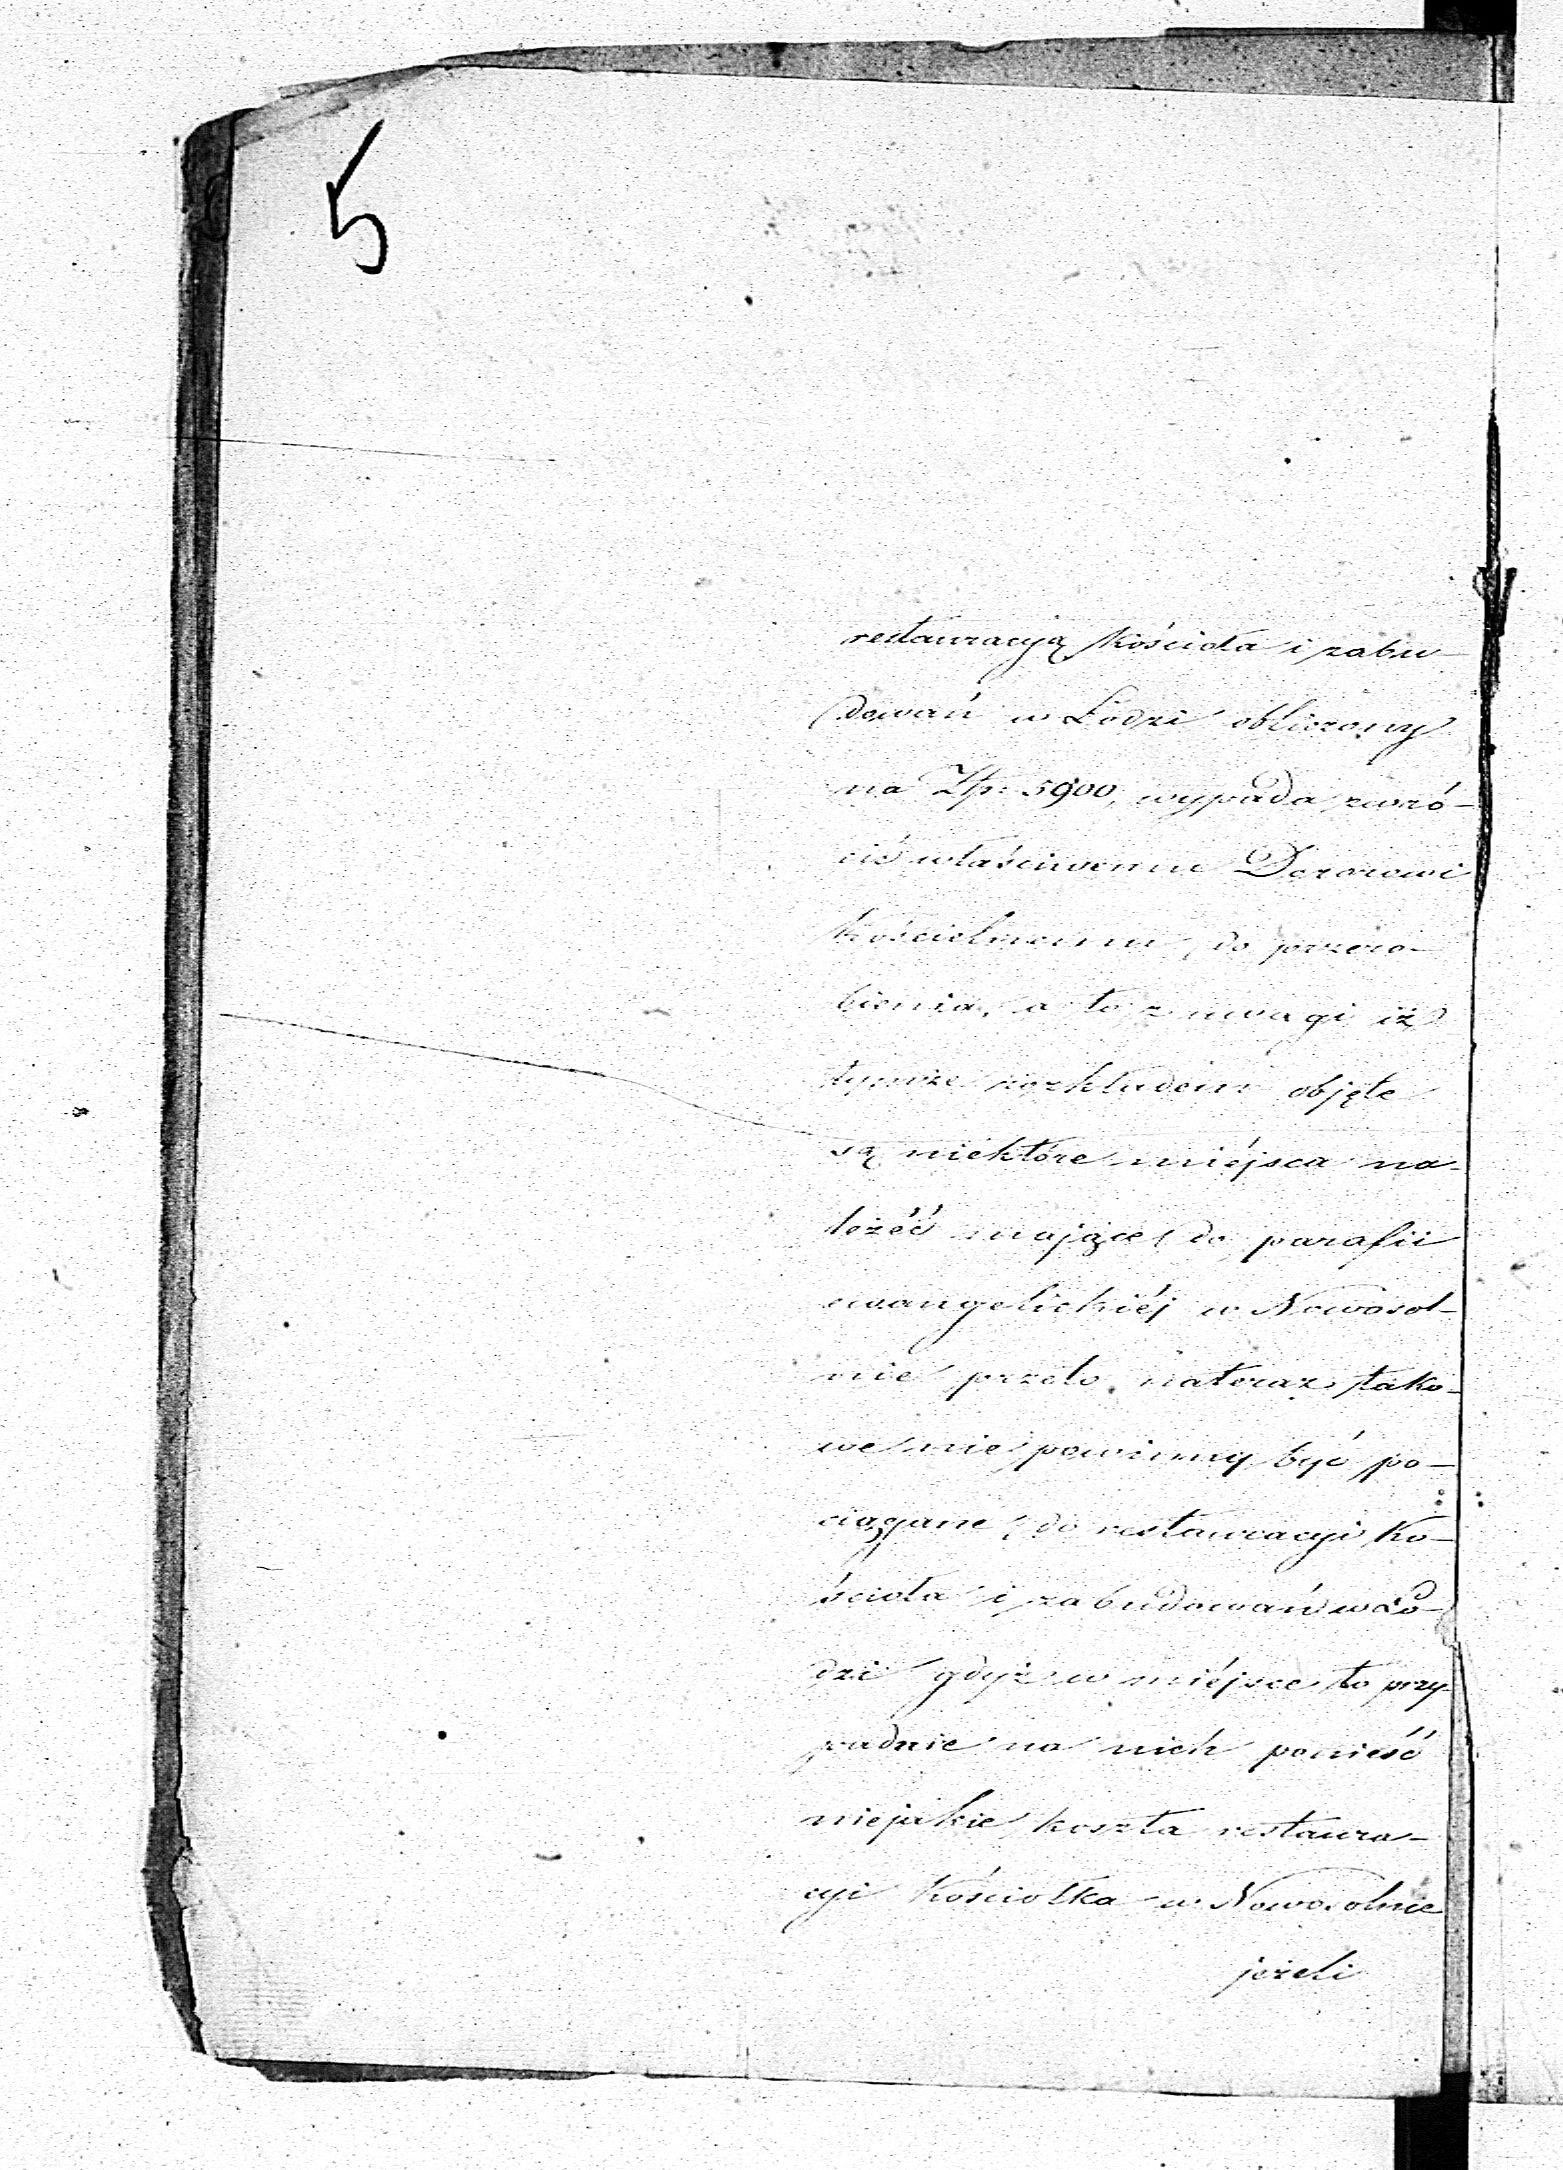 5
restauracyją Kościoła i zabu-
dowań w Łodzi obliczony
na Złp. 5900, wypada zwró-
cić właściwemu Dozorowi
Kościelnemu do przero-
bienia, a to z uwagi iż
tymże rozkładem objęte
są niektóre miéjsca na-
leżéć mające do parafii
ewangelickiéj w Nowosol-
nie przeto natoraz tako-
we nie powinny być po-
ciągane do restauracyi Ko-
ścioła i zabudowań w Ło-
dzi gdyż w miéjsce to przy-
padnie na nich ponieść
niejakie koszta restaura-
cyi Kościołka w Nowosolnie
jeżeli